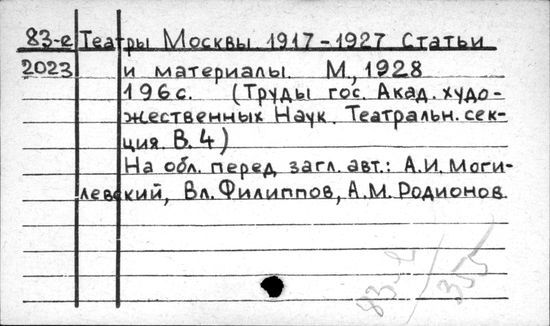 83-е Театры Москвы 1917-1927 Статьи
2023 и материалы. М, 1928
196с. (Труды гос. Акад. худо-
жественных Наук. Театральн. сек-
ция. В. 4)
На обл. перед загл. авт.: А.И. Моги-
левский, Вл. Филиппов, А.М. Родионов
83-е/355